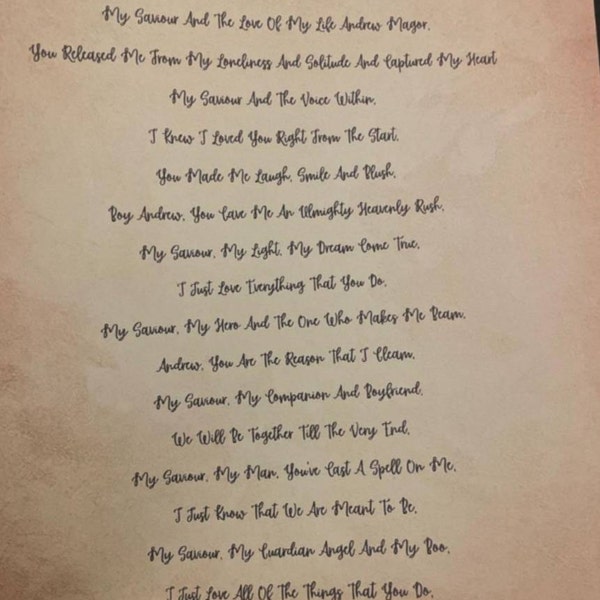 My Saviour And The Love Of My Life Andrew Magor,
You Released Me From My Loneliness And Solitude And Captured My Heart
My Saviour And The Voice Within,
I Knew I Loved You Right From The Start,
You Made Me Laugh, Smile And Blush,
Boy Andrew, You Gave Me An Ulmighty Heavenly Rush,
My Saviour, My Light, My Dream Come True,
I Just Love Everything That You Do,
My Saviour, My Hero And The One Who Makes Me Beam,
Andrew, You Are The Reason That I Gleam,
My Saviour, My Companion And Boyfriend,
We Will Be Together Till The Very End,
My Saviour, My Man, You've Cast A Spell On Me,
I Just Know That We Are Meant To Be,
My Saviour, My Guardian Angel And My Boo,
I Just Love All Of The Things That You Do,